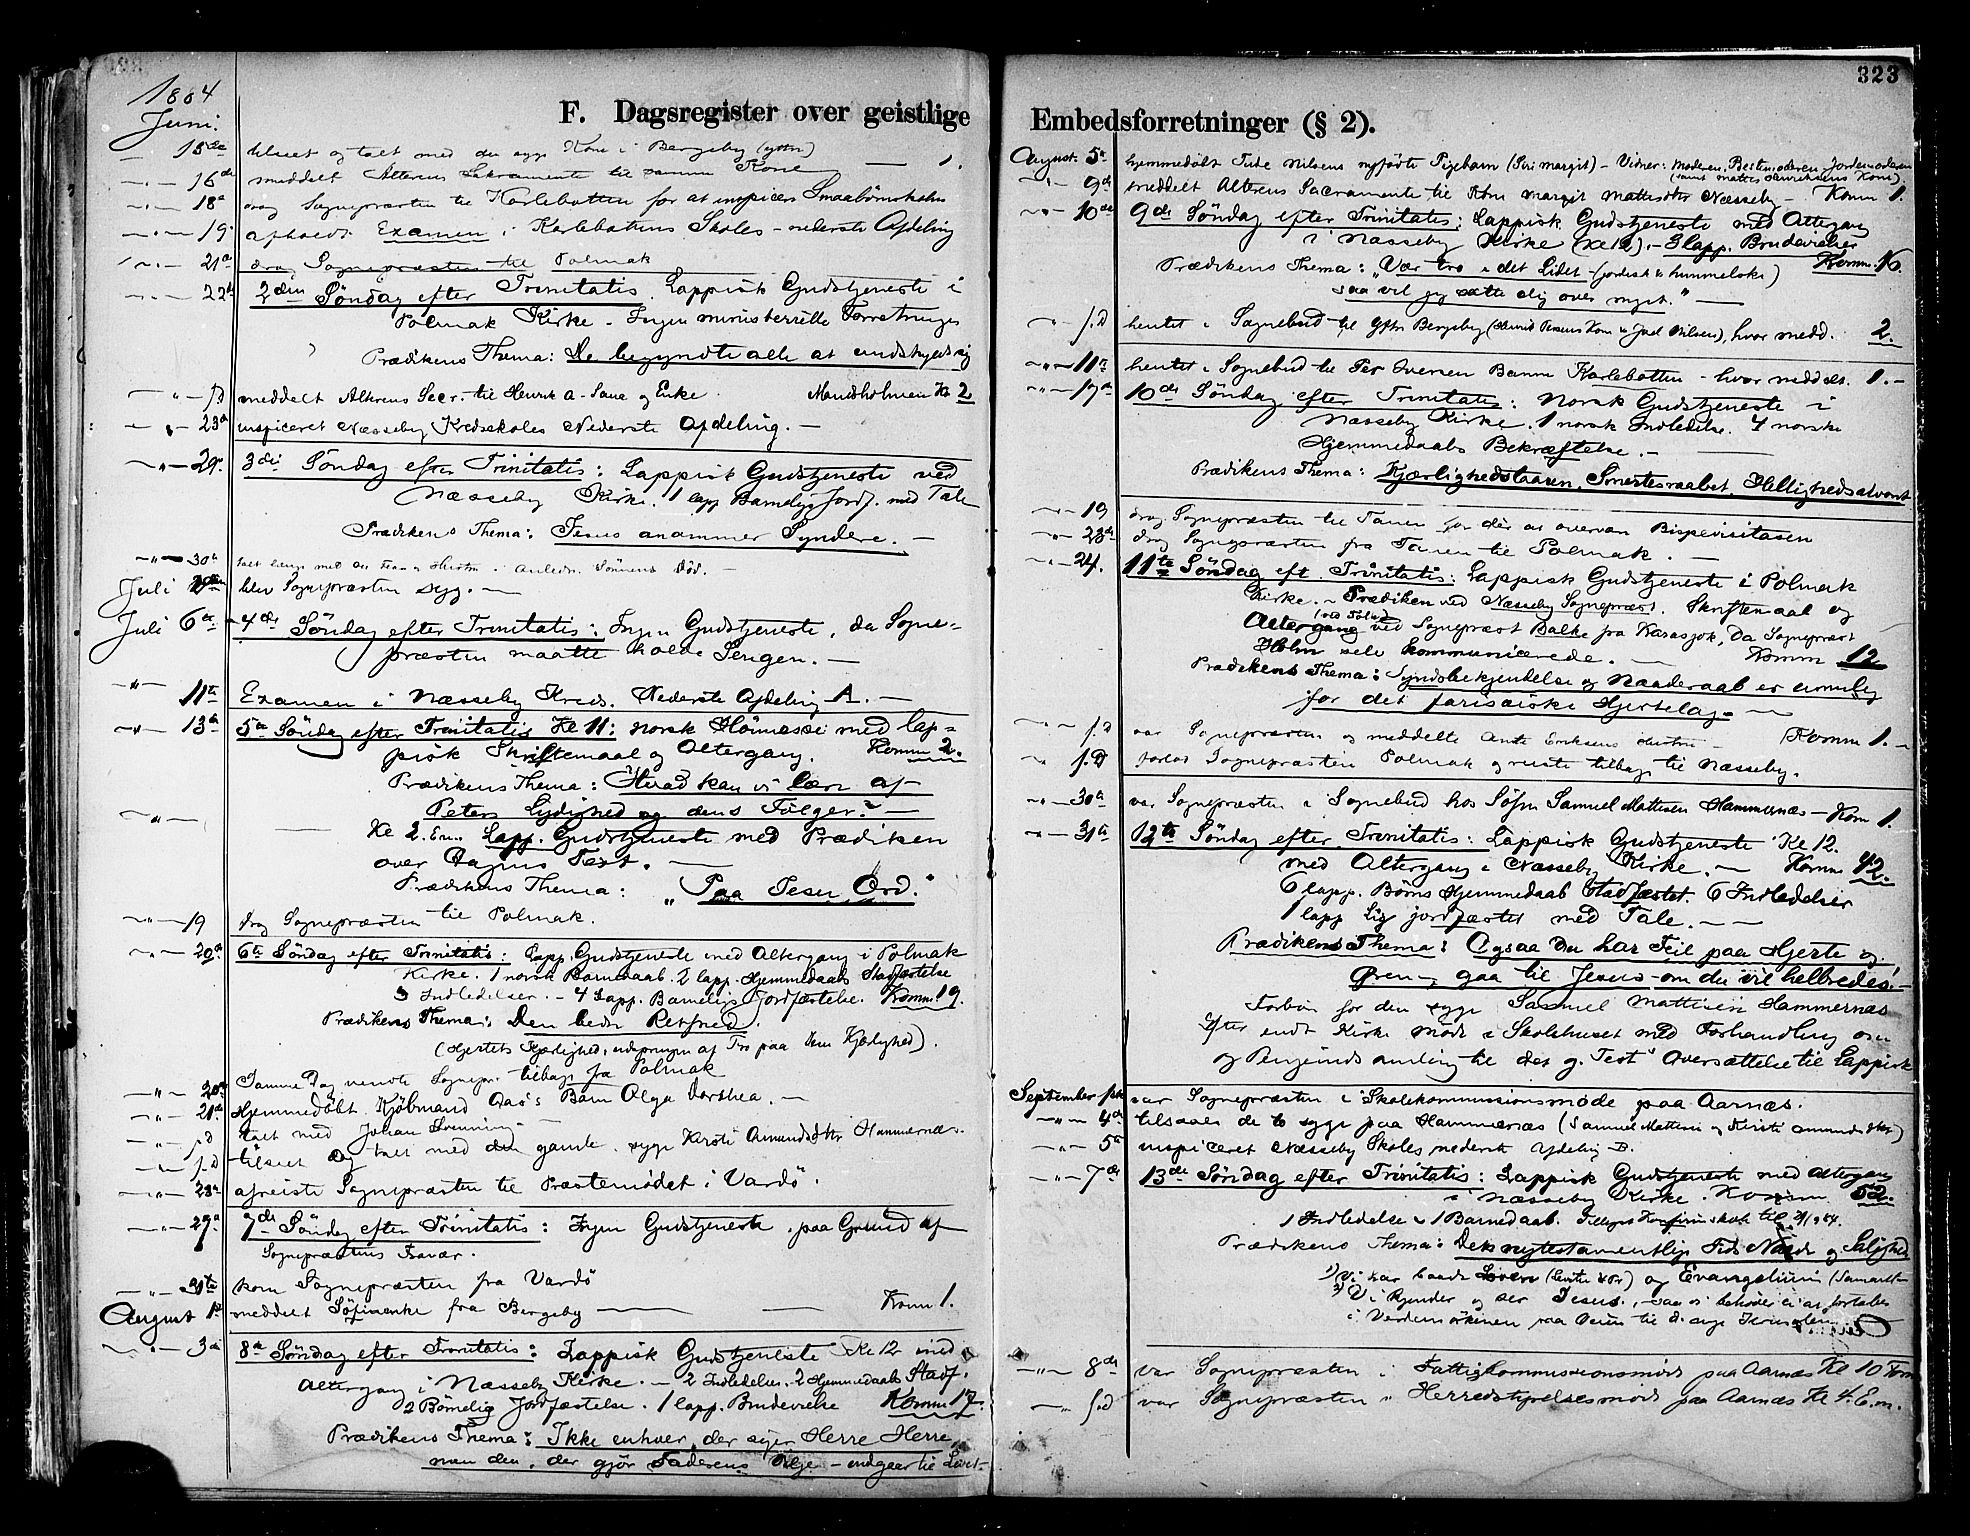 1884
Juni.
F. Dagsregister over geistlige
15de tilseet og talt med den syge Kone i Bergeby
—"— 16de meddelt Alterens Sakramente til samme Kone — 1.
—"— 18de drog Sognepræsten til Karlebotten for at inspicere Smaabørnskolen
—"— 19. afholdt Examen i Karlebottens Skoles nederste Afdeling
—"— 21de drog Sognepræsten til Polmak
—"— 22de 2den Søndag efter Trinitatis. Lappisk Gudstjeneste i
Polmak Kirke. Ingen ministerielle Forretninger
Prædikens Thema: De begyndte alle at undskylde sig
—"— s.D meddelt Alterens Sacr. til Henrik A. Sane og Enke. 2
—"— 23de inspiceret Næsseby Kredsskoles Nederste Afdeling. —
—"— 29. 3die Søndag efter Trinitatis: Lappisk Gudstjeneste ved
Næsseby Kirke. 1 lapp Barneligs Jordf. med Tale
Prædikens Thema: Jesus anammer Syndere. —
—"— 30te i Anledn. Sønnens Død. —
Juli blev Sognepræsten syg. —
Juli 6te 4de Søndag efter Trinitatis: Ingen Gudstjeneste, da Sogne-
præsten maatte holde Sengen. —
" 11te Examen i Næsseby Kreds. Nederste Afdeling A. —
—"— 13de 5te Søndag efter Trinitatis Kl 11: norsk Høimesse med lap-
pisk Skriftemaal og Altergang. Komm 2.
Prædikens Thema: Hvad kan vi lære af
Peters Lydighed og dens Følger? —
—"— Kl 2. Em. Lapp. Gudstjeneste med Prædiken
over Dagens Text. —
Prædikens Thema: „Paa Jesu Ord."
—"— 19 drog Sognepræsten til Polmak.
—"— 20de 6te Søndag efter Trinitatis: Lapp. Gudstjeneste med Altergang i Polmak
Kirke. 1 norsk Barnedaab. 2 lapp. Hjemmedaabs Stadfæstelse
3 Indledelser. – 4 Lapp. Barneligs Jordfæstelse. Komm 19.
Prædikens Thema: Den bedre Retfærd.
(Hjertets Kjærlighed, udsprungen af Tro paa Kjærlighed).
—"— 20de Samme Dag vendte Sognepr. tilbage fra Polmak
—"— 21de Hjemmedøbt Kjøbmand Aas's Barn Olga Dorthea. —
—"— s.d talt med Johan
—"— s.D tilseet og talt med den gamle syge Kirsti Amundsdtr Hammernæs.
—"— 23de afreiste Sognepræsten til Præstemødet i Vardø.
—"— 27de 7de Søndag efter Trinitatis: Ingen Gudstjeneste paa Grund af
Sognepræstens Fravær.
—"— 31te kom Sognepræsten fra Vardø
August 1ste meddelt fra Bergeby — — Komm 1.
—"— 3de 8de Søndag efter Trinitatis: Lappisk Gudstjeneste Kl 12 med
Altergang i Næsseby Kirke. — 2 Indledelser. 2 Hjemmedaabs Stadf.
2 Børnelig Jordfæstelse. 1 lapp. Brudevielse Komm 17.
Prædikens Thema: Ikke enhver, der siger Herre Herre,
men den, der gjør Faderens Vilje – indgaaer til Livet
323
Embedsforretninger (§ 2).
August. 5te hjemmedøbt Nilsens nyfødte Pigebarn (Siri Margit) – Vidner: Moderen, Bestemoderen, Jordemoderen
—"— 9de meddelt Alterens Sacramente til Margit Næsseby – Komm 1.
—"— 10de 9de Søndag efter Trinitatis: Lappisk Gudstjeneste med Altergang
i Næsseby Kirke (Kl 12). – 3 lapp. Brudevielser
Prædikens Thema: „Vær tro i det Lidet Komm. 16.
saa vil jeg sætte dig over meget." —
—"— s.D hentet i Sognebud til Bergeby, hvor medd. 2.
—"— 11te hentet i Sognebud til Per Iversen Karlebotten – hvor meddelt. 1.–
—"— 17de 10de Søndag efter Trinitatis: Norsk Gudstjeneste i
Næsseby Kirke. 1 norsk Indledelse. 4 norske
Hjemmedaabs Bekræftelse. –
Prædikens Thema: Kjærlighedstaaren. Smertesraabet. Hellighedsalvoret
—"— 19 drog Sognepræsten til Tanen for der at overvære Bispevisitasen
—"— 23de drog Sognepræsten fra Tanen til Polmak. —
—"— 24. 11te Søndag eft. Trinitatis: Lappisk Gudstjeneste i Polmak
Kirke. – Prædiken ved Næsseby Sognepræst. Skriftemaal og
Altergang ved Sognepræst Balke fra Karasjok, Da Sognepræst
Holm selv kommunicerede. — Komm 12
Prædikens Thema: Syndsbekjendelse og Naaderaab er umulig
for det farisæiske Hjertelag —
—"— s.d var Sognepræsten og meddelte Eriksens — Komm 1. –
" s.D forlod Sognepræsten Polmak og reiste tilbage til Næsseby.
—"— 30te var Sognepræsten i Sognebud hos Søfin Samuel Mattisen Hammernæs – Kom 1.
—"— 31te 12te Søndag efter Trinitatis: Lappisk Gudstjeneste Kl 12.
med Altergang i Næsseby Kirke. — Komm 42.
6 lapp. Børns Hjemmedaab stadfæstet. 6 Indledelser
1 lapp Lig jordfæstet med Tale. — —
Prædikens Thema: Ogsaa Du har Feil paa Hjerte og
Øren – gaa til Jesus – om du vil helbredes! –
Forbøn for den syge Samuel Mattisen Hammernæs
Efter endt Kirke Møde i Skolehuset med Forhandling om
og Pengeindsamling til det g. Test' Oversættelse til Lappisk
September 1ste var Sognepræsten i Skolekommissionsmøde paa Aarnæs.
—"— 4de tilsaaes de to syge paa Hammernæs (Samuel Mattisen og Kirsti Amundsdtr)
—"— 5te inspiceret Næsseby Skoles nederste Afdeling B.
—"— 7de 13de Søndag efter Trinitatis: Lappisk Gudstjeneste med Altergang
i Næsseby Kirke. Komm 52.
1 Indledelse 1 Barnedaab.
Prædikens Thema: Den nytestamentlige Tids Naade og Salighed
1) Vi har baade Loven og Evangelium
2) Vi kjender og ser Jesus,
i Verdens ørkenen paa Veien til d. nye Jerusalem
—"— 8de var Sognepræsten i Fattigkommissionsmøde paa Aarnæs Kl 10 Fm
—"— s.d var Sognepræsten i Herredstyrelsesmøde paa Aarnæs Kl 4. E.m.